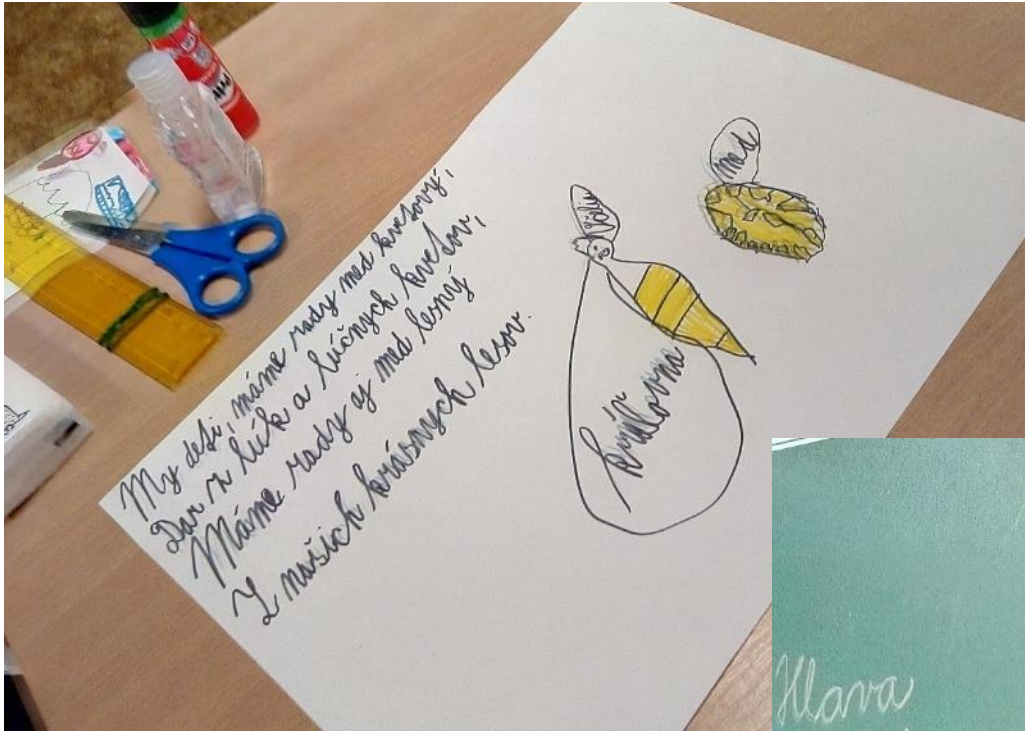 My deti, máme rady med kvetový,
Dar z lúk a lúčnych kvetov,
Máme rady aj med lesný
Z našich krásnych lesov.
med
kráľovná
Hlava